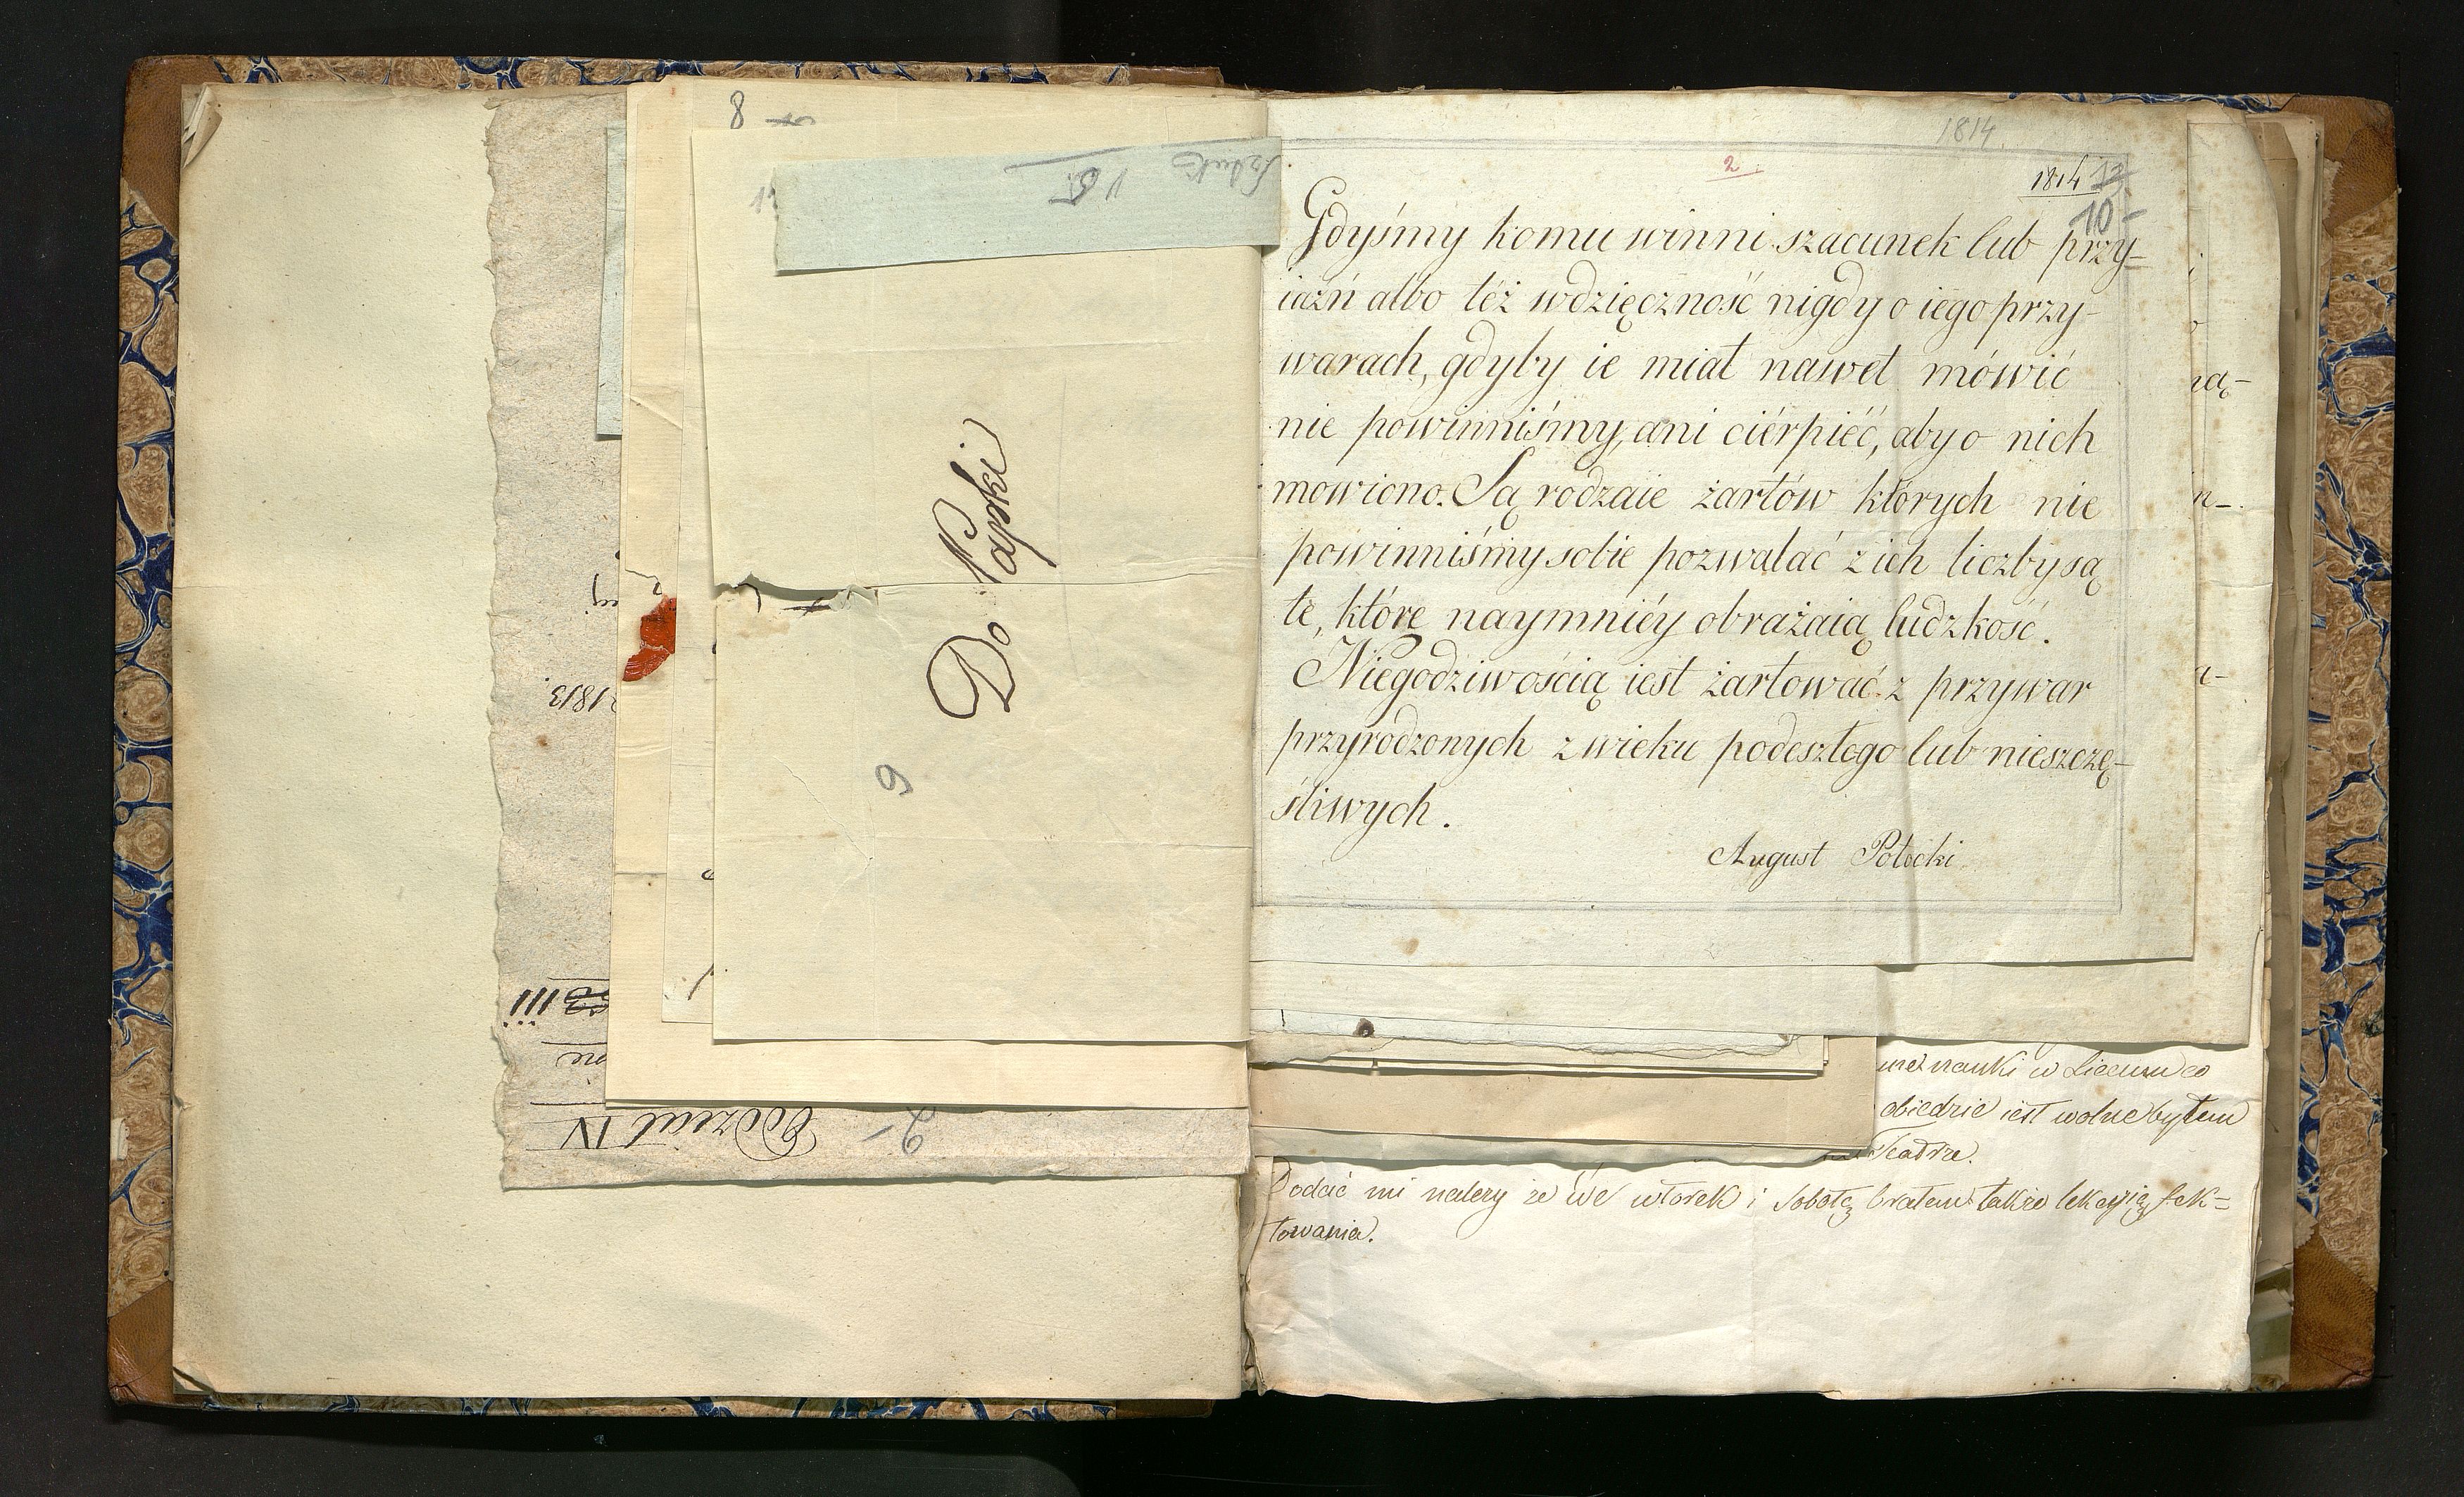 8
Do Papki
9
1813.
III
Oddział IV
2-
1814
2
1814 12
10-
Gdyśmy komu winni szacunek lub przy-
iaźń albo téż wdzięczność nigdy o iego przy-
warach, gdyby ie miał nawet mówić
nie powinniśmy, ani ciérpiéć, aby o nich
mowiono. Są rodzaie żartów których nie
powinniśmy sobie pozwalać z ich liczby są
te, które naymniéy obrażaią ludzkość.
Niegodziwością iest żartować z przywar
przyrodzonych z wieku podeszłego lub nieszczę-
śliwych.
August Potocki
nauki w Liceum co
obiedzie iest wolne byłem
Teatrze.
Dodać mi należy że we wtorek i Sobotę brałem także lekcyią fek=
towania.